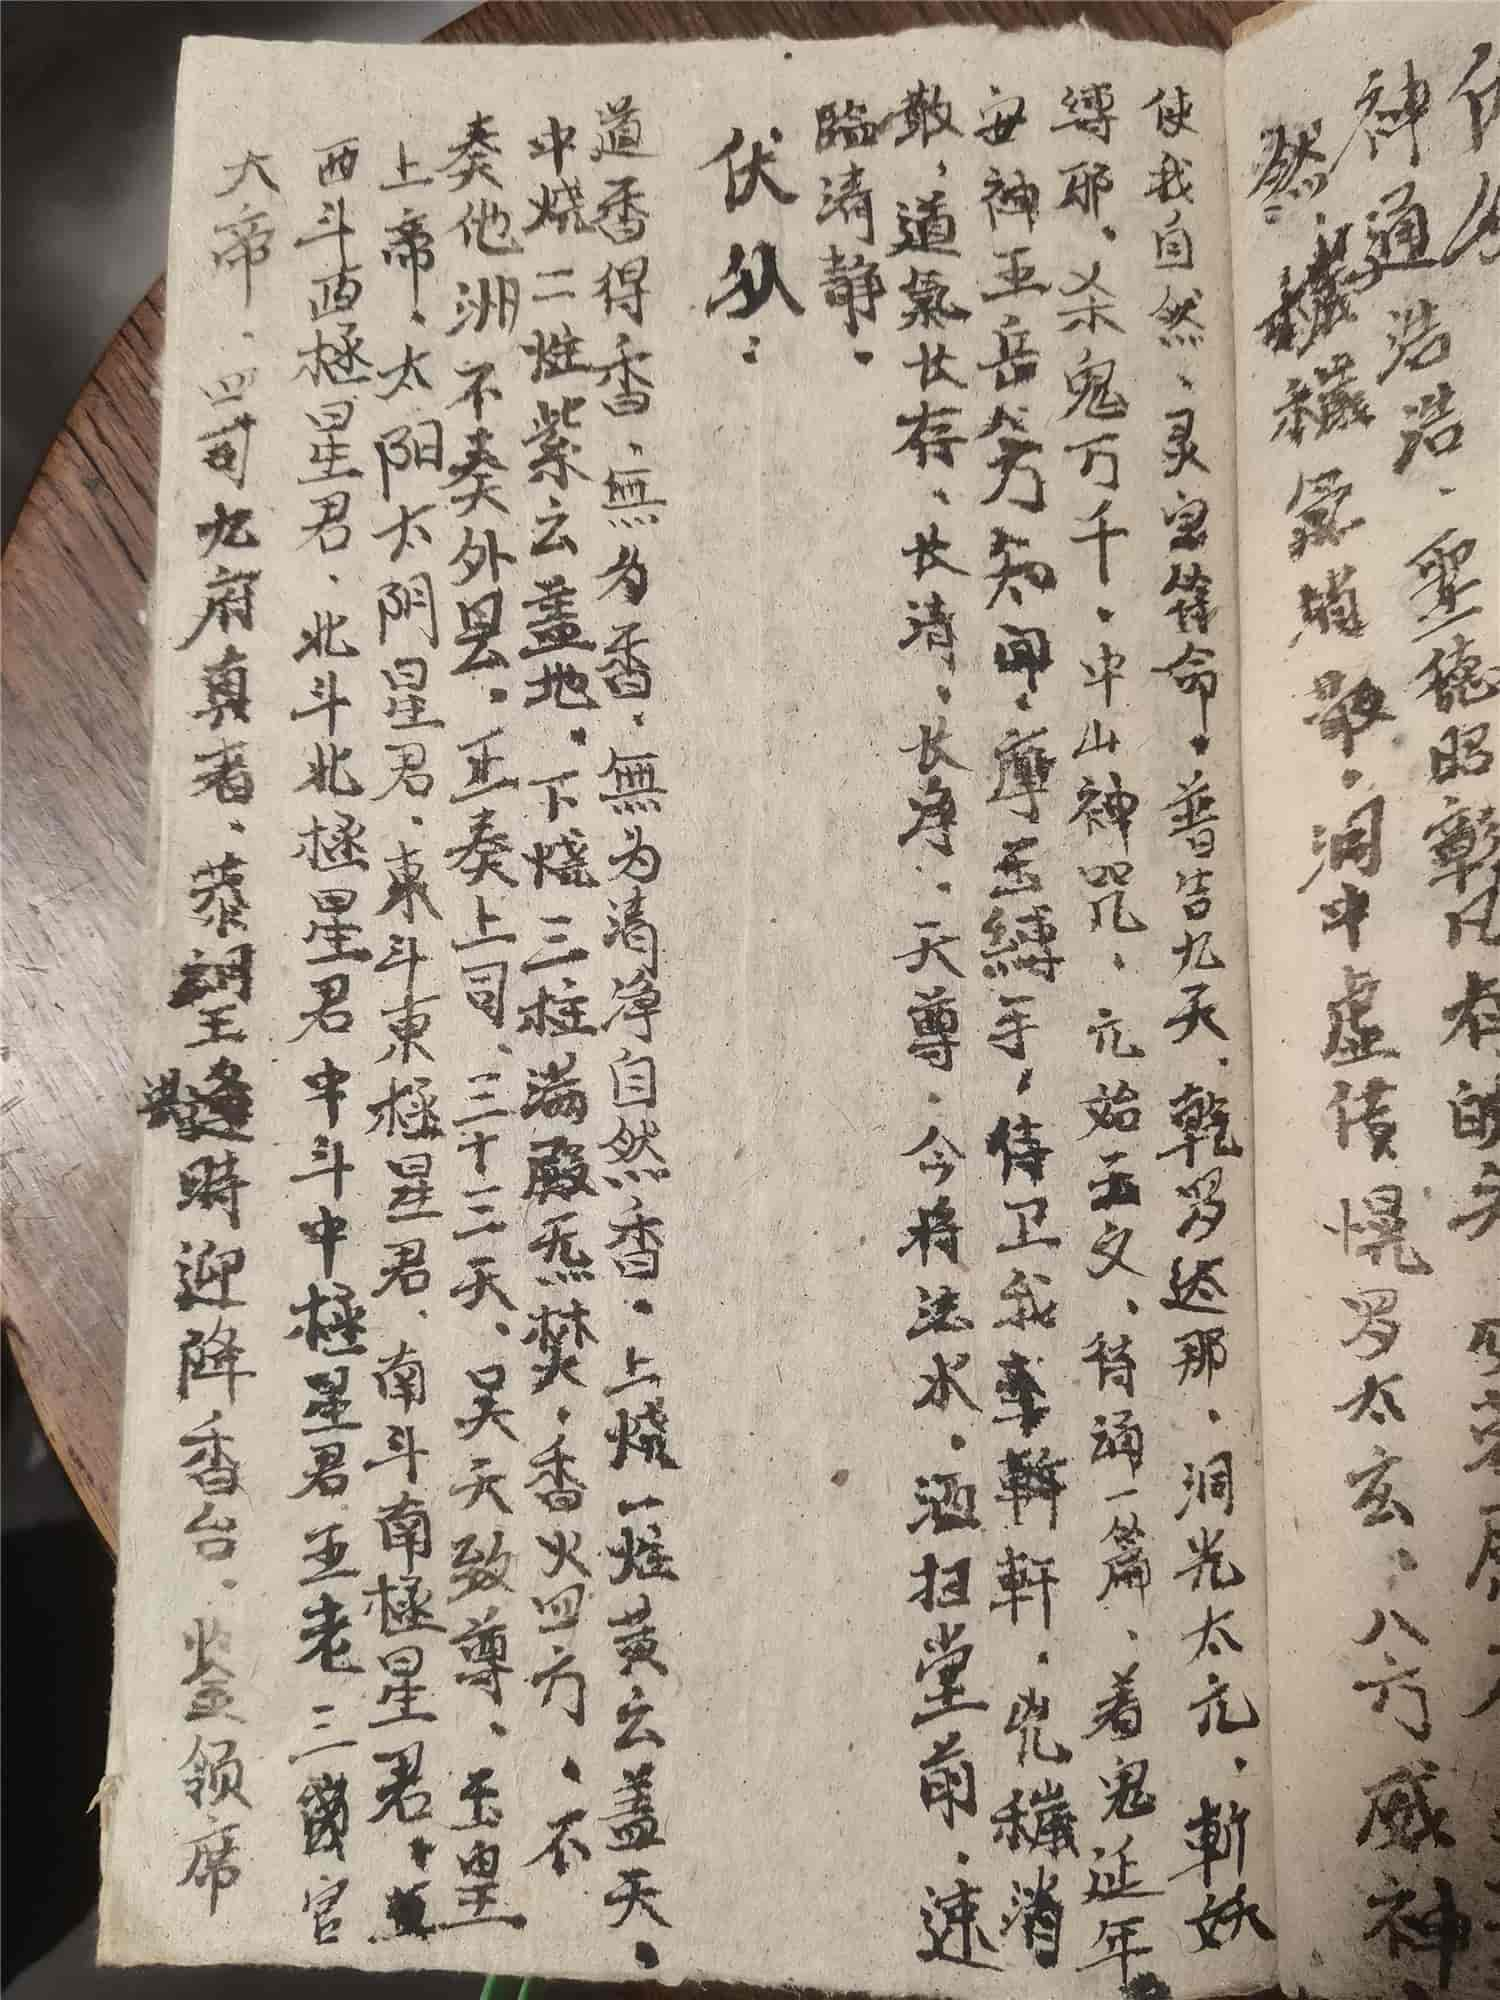 神通浩浩、聖德昭彰凡有
然、穢穢氛消散、洞中虛僙幌罗太玄、八方威神
使我自然、灵宝符命、普告九天、乾罗达那、洞光太亢、斬妖
縛耶、杀鬼万千、中山神咒、亢始玉文、待誦一篇、着鬼延年
安神王岳八方知闻、摩王縛手、侍卫我軒、兇穢消
散、道氣长存、长清、长净、天尊、今将法水、洒扫堂前、速
臨清静、
伏以：
道香得香、無为香、無为清净自然香、上燒一炷黃云蓋天、
中燒二炷紫云蓋地、下燒三柱满殿焚、香火四方、不
奏他洲不奏外县、正奏上司、三十三天、吴天致尊、玉皇
上帝、太阳太阴星君、東斗東極星君、南斗南極星君、
西斗西極星君、北斗北極星君中斗中極星君五老三官
大帝、四司九府真者、恭調王時迎降香台、监领席